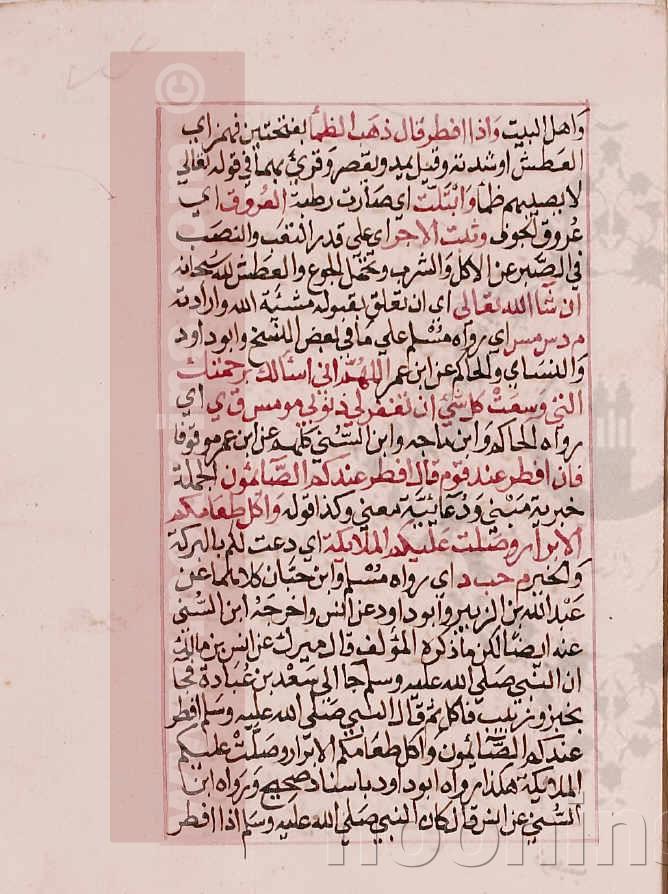 واهل البيت واذا افطر قال ذهب الظمأ بفتحتين فهمز اي
العطش او شدته وقيل يمد ويقصر وقرئ بهما في قوله تعالى
لا يصيبهم ظمأ وابتلت اي صارت رطبة العروق اي
عروق الجوف وثبت الاجر اي على قدر التعب والنصب
في الصبر عن الاكل والشرب وتحمل الجوع والعطش لله سبحانه
ان شا الله تعالى اي ان تعلق بقبوله مشئية الله وارادته
م د س مس اي رواه مسلم على ما في بعض النسخ وابو داود
والنساي والحاكم عن ابن عمر اللهم اني اسئالك برحمتك
التي وسعت كل شئ ان تغفر لي ذنوبي مو مس ق ي اي
رواه الحاكم وابن ماجه وابن السني كلهم عن ابن عمر موقوفا
فان افطر عند قوم قال افطر عندكم الصائمون الجملة
خبرية مبني ودعائية معني وكذا قوله واكل طعامكم
الابرار وصلت عليكم الملايكة اي دعت لكم بالبركة
والخير م حب د اي رواه مسلم وابن حبان كلاهما عن
عبد الله بن الزبير وابو داود عن انس واخرجه ابن السني
عنه ايضا لكن ما ذكره المؤلف قال ميرك عن انس بن مالك
ان النبي صلى الله عليه وسلم جا الى سعد بن عبادة فجا
بخبز وزيت فاكل ثم قال النبي صلى الله عليه وسلم افطر
عندكم الصائمون واكل طعامكم الابرار وصلت عليكم
الملايكة هكذا رواه ابو داود باسناد صحيح ورواه ابن
السني عن انس قال كان النبي صلى الله عليه وسلم اذا افطر
noorlib